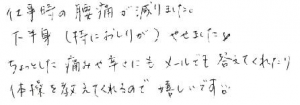 仕事時の腰痛が減りました。
下半身(特におしりが)やせました
ちょっとした痛みや辛さにもメールでも答えてくれたり
体操を教えてくれるので嬉しいです。